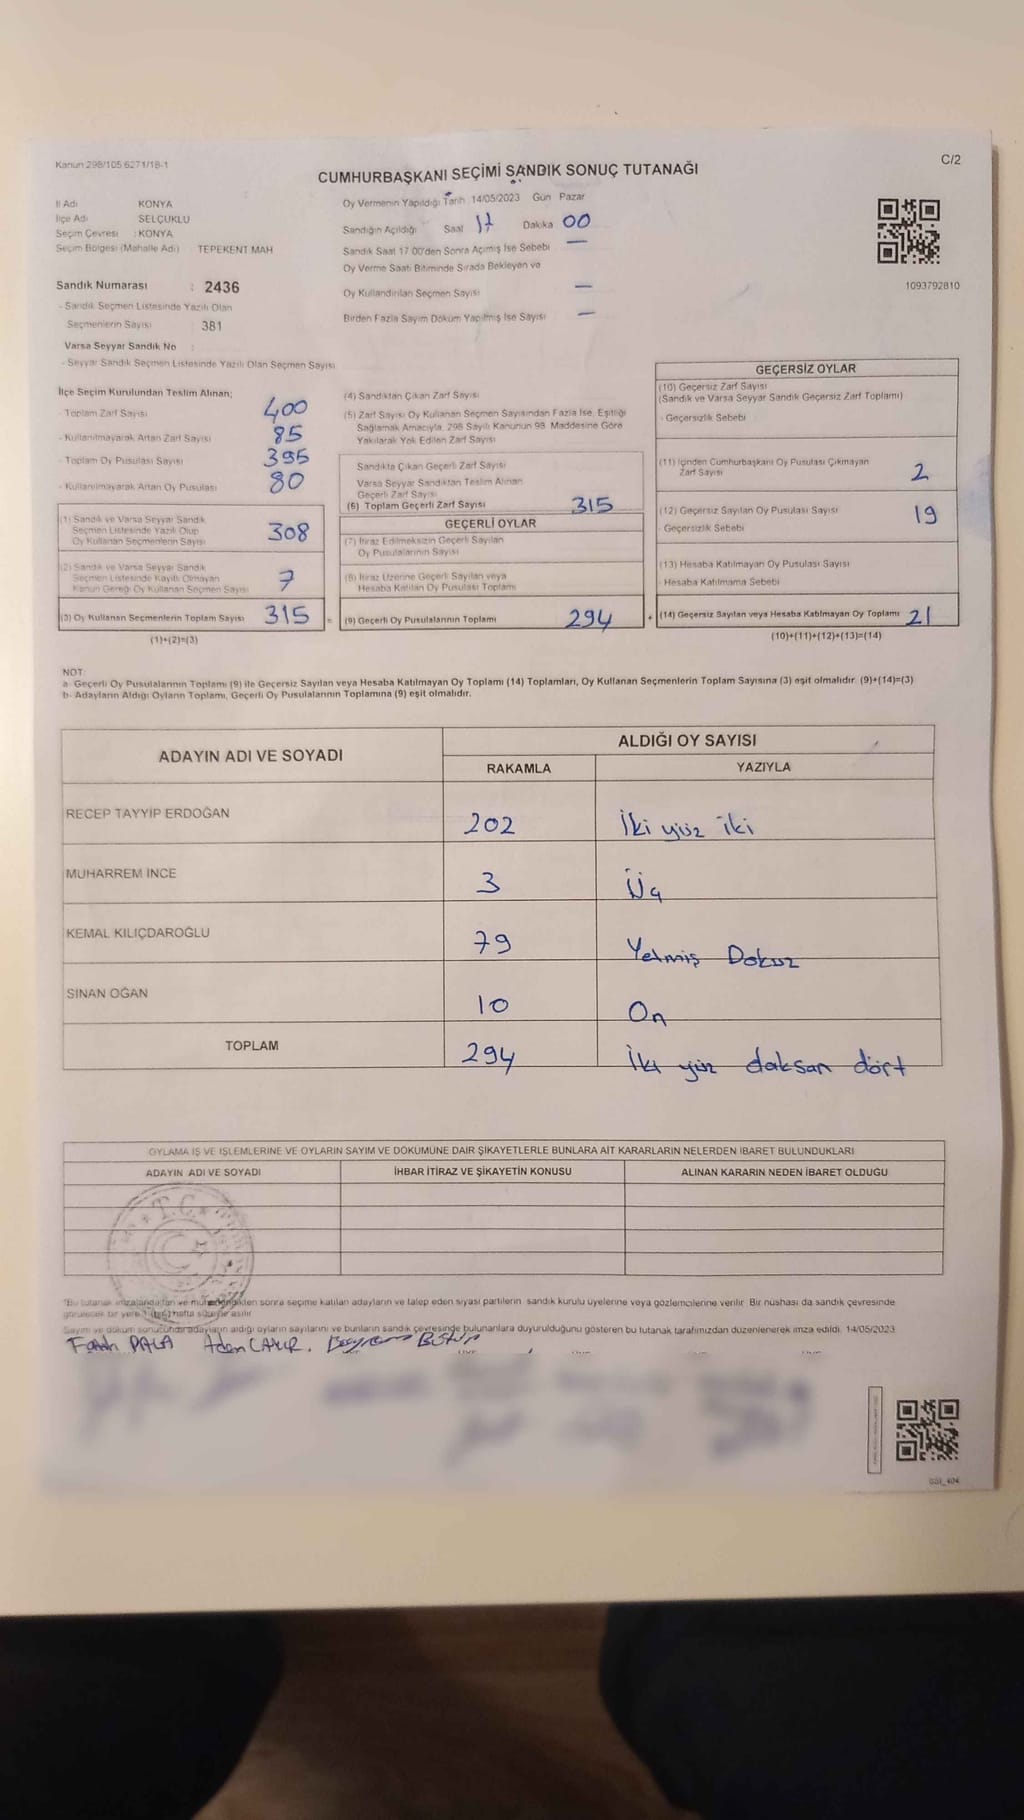 Kanun 298/105 6271/18-1
C/2
CUMHURBAŞKANI SEÇİMİ SANDIK SONUÇ TUTANAĞI
İl Adı KONYA
İlçe Adı SELÇUKLU
Seçim Çevresi : KONYA
Seçim Bölgesi (Mahalle Adı) TEPEKENT MAH
Oy Vermenin Yapıldığı Tarih 14/05/2023 Gün Pazar
Sandığın Açıldığı Saat 17 Dakika 00
Sandık Saat 17 00'den Sonra Açımış İse Sebebi —
Oy Verme Saati Bitiminde Sırada Bekleyen ve
Oy Kullandırılan Seçmen Sayısı —
Birden Fazla Sayım Döküm Yapılmış İse Sayısı —
1093792810
Sandık Numarası : 2436
- Sandık Seçmen Listesinde Yazılı Olan
Seçmenlerin Sayısı 381
Varsa Seyyar Sandık No :
- Seyyar Sandık Seçmen Listesinde Yazılı Olan Seçmen Sayısı
İlçe Seçim Kurulundan Teslim Alınan;
- Toplam Zarf Sayısı 400
- Kullanılmayarak Artan Zarf Sayısı 85
- Toplam Oy Pusulası Sayısı 395
- Kullanılmayarak Artan Oy Pusulası 80
(1) Sandık ve Varsa Seyyar Sandık
Seçmen Listesinde Yazılı Olup
Oy Kullanan Seçmenlerin Sayısı 308
(2) Sandık ve Varsa Seyyar Sandık
Seçmen Listesinde Kayıtlı Olmayan
Kanun Gereği Oy Kullanan Seçmen Sayısı 7
(3) Oy Kullanan Seçmenlerin Toplam Sayısı 315 =
(1)+(2)=(3)
(4) Sandıktan Çıkan Zarf Sayısı
(5) Zarf Sayısı Oy Kullanan Seçmen Sayısından Fazla İse, Eşitliği
Sağlamak Amacıyla, 298 Sayılı Kanunun 98. Maddesine Göre
Yakılarak Yok Edilen Zarf Sayısı
Sandıkta Çıkan Geçerli Zarf Sayısı
Varsa Seyyar Sandıktan Teslim Alınan
Geçerli Zarf Sayısı
(6) Toplam Geçerli Zarf Sayısı 315
GEÇERLİ OYLAR
(7) İtiraz Edilmeksizin Geçerli Sayılan
Oy Pusulalarının Sayısı
(8) İtiraz Üzerine Geçerli Sayılan veya
Hesaba Katılan Oy Pusulası Toplamı
(9) Geçerli Oy Pusulalarının Toplamı 294 +
GEÇERSİZ OYLAR
(10) Geçersiz Zarf Sayısı
(Sandık ve Varsa Seyyar Sandık Geçersiz Zarf Toplamı)
- Geçersizlik Sebebi
(11) İçinden Cumhurbaşkanı Oy Pusulası Çıkmayan
Zarf Sayısı 2
(12) Geçersiz Sayılan Oy Pusulası Sayısı 19
- Geçersizlik Sebebi
(13) Hesaba Katılmayan Oy Pusulası Sayısı
- Hesaba Katılmama Sebebi
(14) Geçersiz Sayılan veya Hesaba Katılmayan Oy Toplamı 21
(10)+(11)+(12)+(13)=(14)
NOT
a- Geçerli Oy Pusulalarının Toplamı (9) ile Geçersiz Sayılan veya Hesaba Katılmayan Oy Toplamı (14) Toplamları, Oy Kullanan Seçmenlerin Toplam Sayısına (3) eşit olmalıdır. (9)+(14)=(3)
b- Adayların Aldığı Oyların Toplamı, Geçerli Oy Pusulalarının Toplamına (9) eşit olmalıdır.
ADAYIN ADI VE SOYADI
ALDIĞI OY SAYISI
RAKAMLA YAZIYLA
RECEP TAYYİP ERDOĞAN 202 İki yüz iki
MUHARREM İNCE 3 Üç
KEMAL KILIÇDAROĞLU 79 Yetmiş Dokuz
SİNAN OĞAN 10 On
TOPLAM 294 İki yüz doksan dört
OYLAMA İŞ VE İŞLEMLERİNE VE OYLARIN SAYIM VE DÖKÜMÜNE DAİR ŞİKAYETLERLE BUNLARA AİT KARARLARIN NELERDEN İBARET BULUNDUKLARI
ADAYIN ADI VE SOYADI İHBAR İTİRAZ VE ŞİKAYETİN KONUSU ALINAN KARARIN NEDEN İBARET OLDUĞU
T.C.
*Bu tutanak imzalandıktan ve mühürlendikten sonra seçime katılan adayların ve talep eden siyasi partilerin sandık kurulu üyelerine veya gözlemcilerine verilir. Bir nüshası da sandık çevresinde
görülecek bir yere 1 (bir) hafta süreyle asılır
Sayım ve döküm sonucunda adayların aldığı oyların sayılarını ve bunların sandık çevresinde bulunanlara duyurulduğunu gösteren bu tutanak tarafımızdan düzenlenerek imza edildi. 14/05/2023
PALA